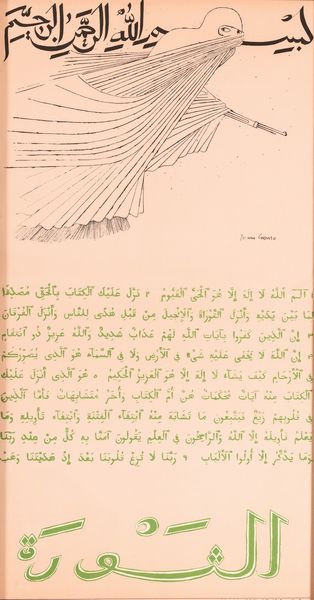 بسم الله الرحمن الرحيم
الم الله لا إله إلا هو الحي القيوم ٢ نزل عليك الكتاب بالحق مصدقا
لما بين يديه وأنزل التوراة والإنجيل من قبل هدى للناس وأنزل الفرقان
إن الذين كفروا بآيات الله لهم عذاب شديد والله عزيز ذو انتقام
إن الله لا يخفى عليه شيء في الأرض ولا في السماء هو الذي يصوركم
في الأرحام كيف يشاء لا إله إلا هو العزيز الحكيم ٥ هو الذي أنزل عليك
الكتاب منه آيات محكمات هن أم الكتاب وأخر متشابهات فأما الذين
في قلوبهم زيغ فيتبعون ما تشابه منه ابتغاء الفتنة وابتغاء تأويله وما
يعلم تأويله إلا الله والراسخون في العلم يقولون آمنا به كل من عند ربنا
وما يذكر إلا أولوا الألباب ٦ ربنا لا تزغ قلوبنا بعد إذ هديتنا وهب
الثورة